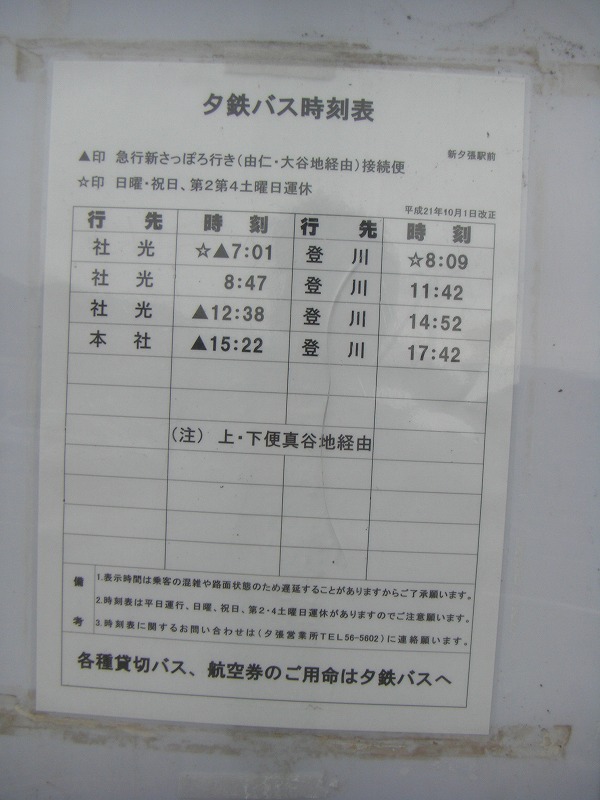 夕鉄バス時刻表
新夕張駅前
▲印 急行新さっぽろ行き(由仁・大谷地経由)接続便
☆印 日曜・祝日、第2第4土曜日運休
平成21年10月1日改正
行先 時刻 行先 時刻
社光 ☆▲7:01 登川 ☆8:09
社光 8:47 登川 11:42
社光 ▲12:38 登川 14:52
本社 ▲15:22 登川 17:42
(注) 上・下便真谷地経由
備考
1.表示時間は乗客の混雑や路面状態のため遅延することがありますからご了承願います。
2.時刻表は平日運行、日曜、祝日、第2・4土曜日運休がありますのでご注意願います。
3.時刻表に関するお問い合わせは(夕張営業所TEL56-5602)に連絡願います。
各種貸切バス、航空券のご用命は夕鉄バスへ